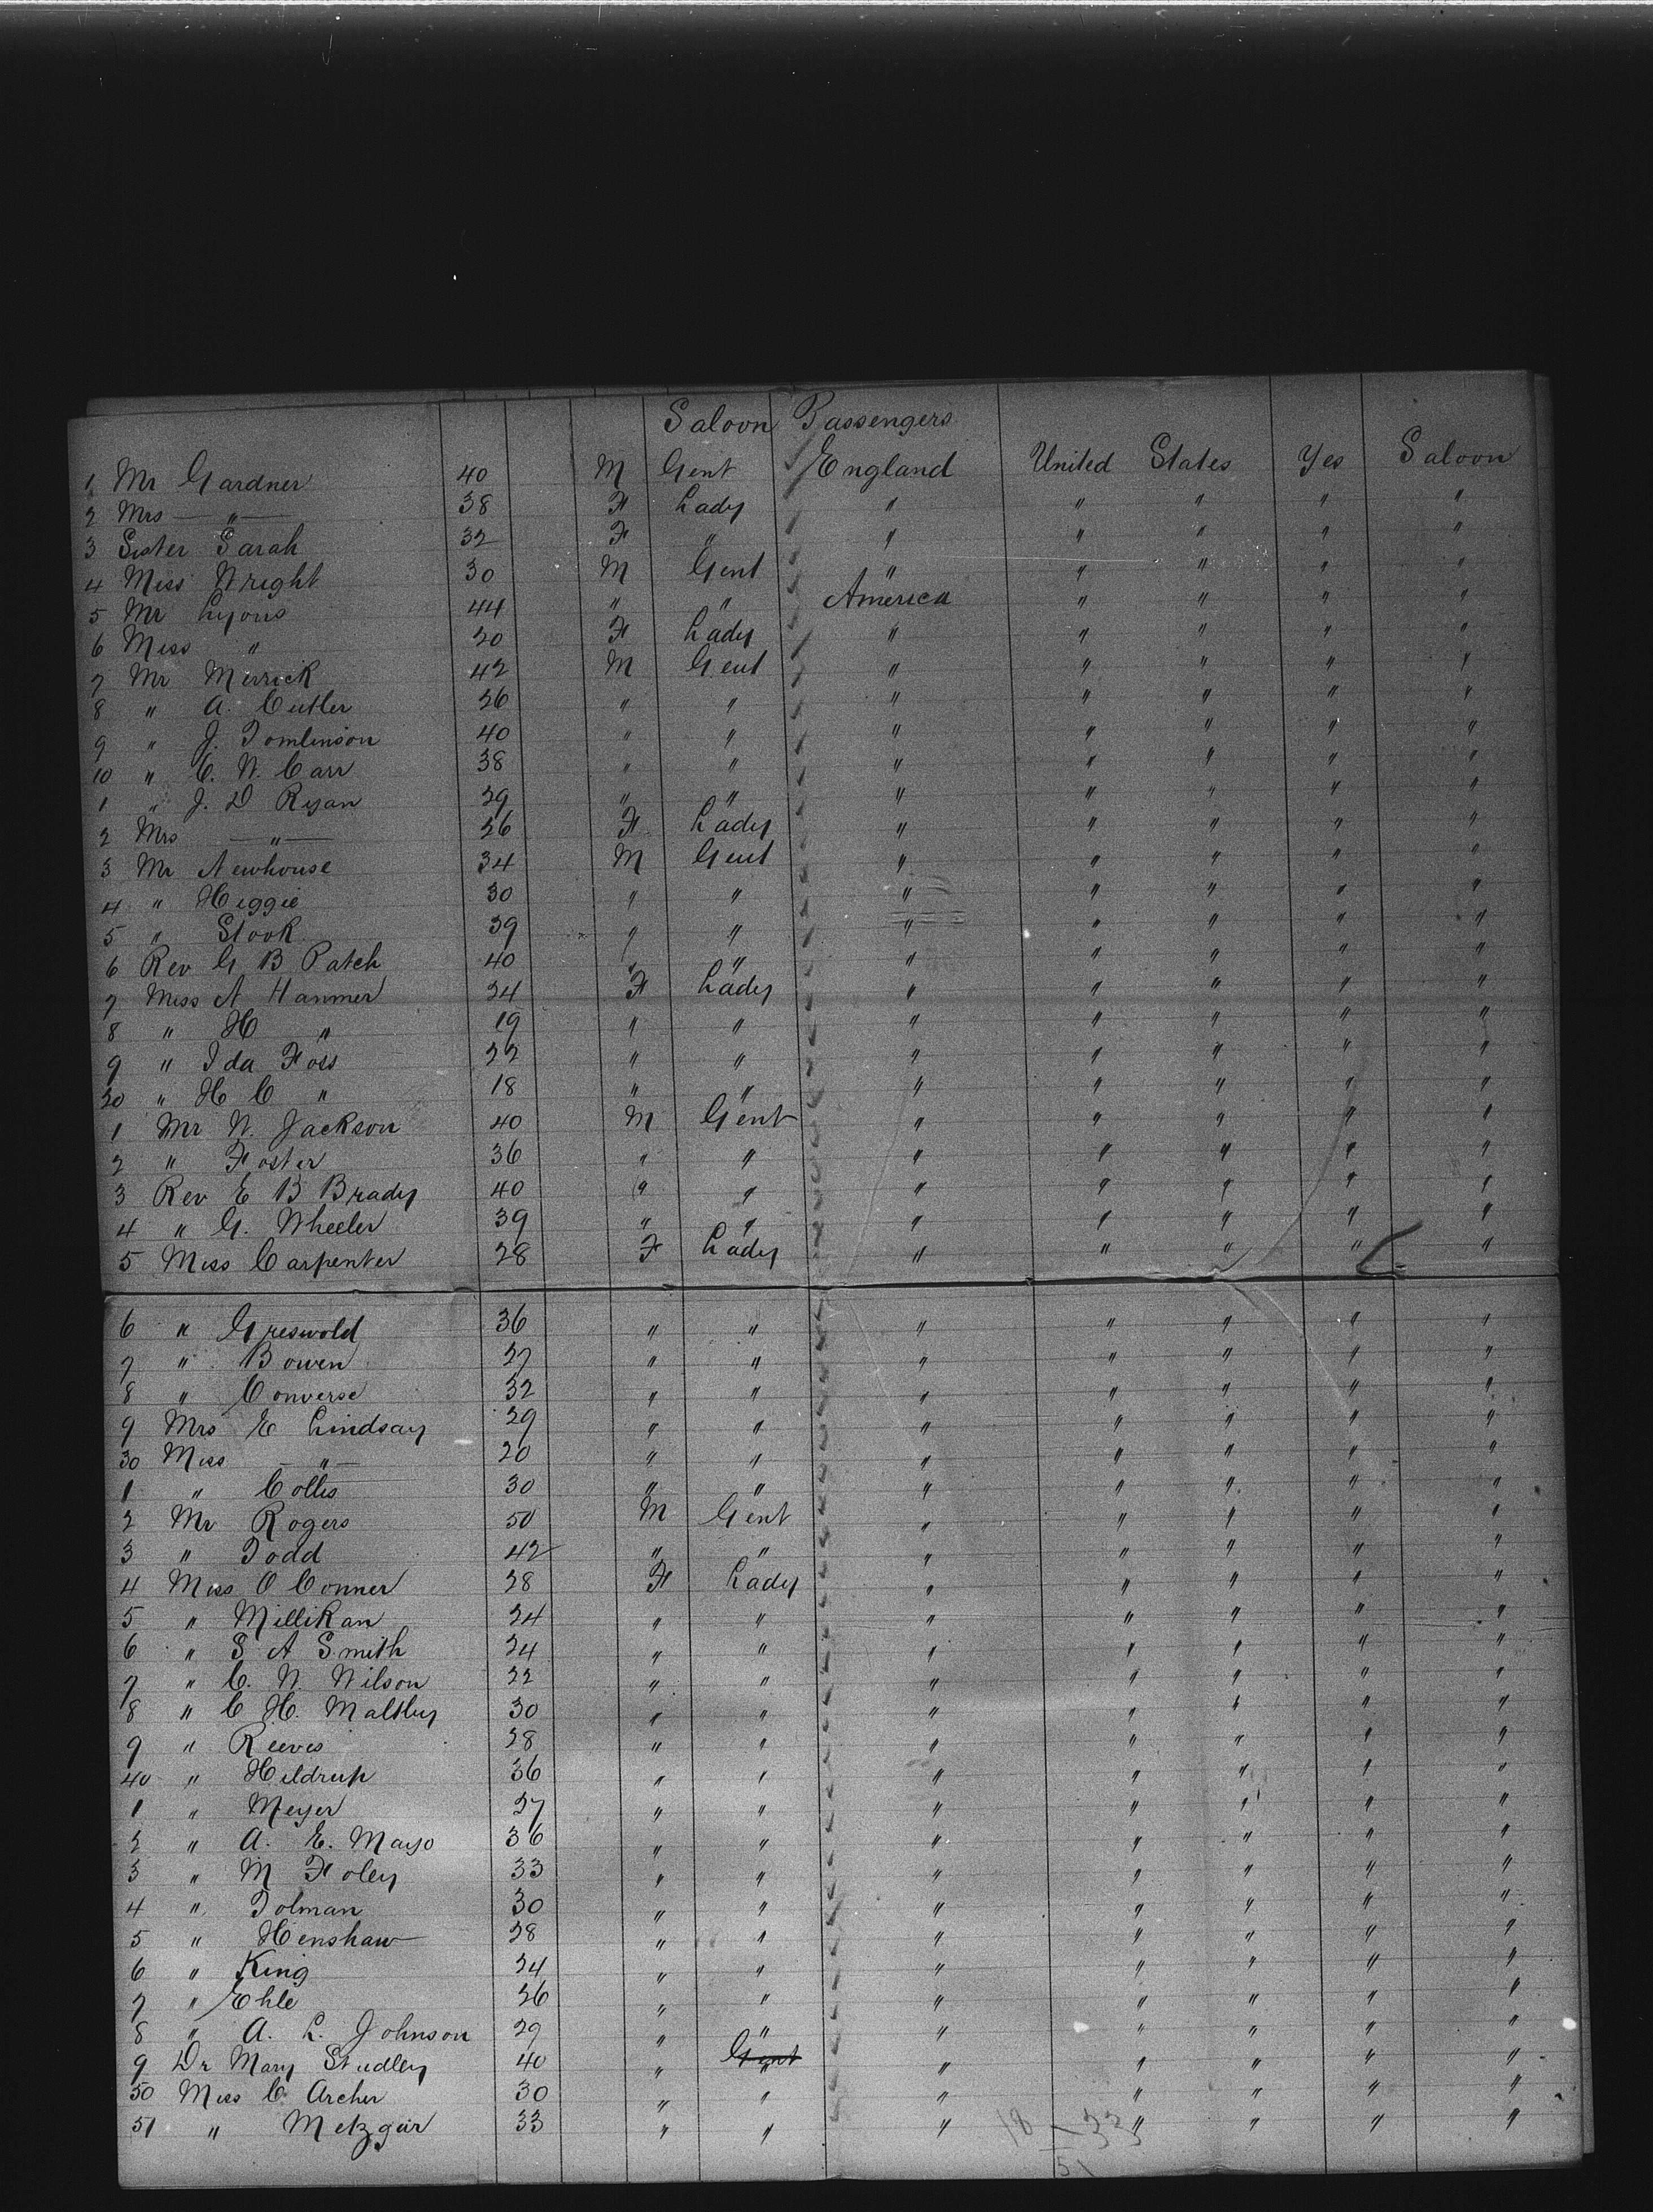 Saloon Passengers
1 Mr Gardner 40 M Gent England United States Yes Saloon
2 Mrs — " — 38 F Lady " " " " "
3 Sister Sarah 32 F " " " " " "
4 Miss Wright 30 M Gent " " " " "
5 Mr Lyons 44 " " America " " " "
6 Miss " 20 F Lady " " " " "
7 Mr Merrick 42 M Gent " " " " "
8 " A. Cutler 26 " " " " " " "
9 " J. Tomlinson 40 " " " " " " "
10 " C. W. Carr 38 " " " " " " "
1 " J. D Ryan 29 " " " " " " "
2 Mrs — " — 26 F Lady " " " " "
3 Mr Newhouse 34 M Gent " " " " "
4 " Higgie 30 " " " " " " "
5 " Stook 39 " " " " " " "
6 Rev G B Patch 40 " " " " " " "
7 Miss A Hanmer 24 F Lady " " " " "
8 " H " 19 " " " " " " "
9 " Ida Foss 22 " " " " " " "
20 " H C " 18 " " " " " " "
1 Mr W. Jackson 40 M Gent " " " " "
2 " Foster 36 " " " " " " "
3 Rev E B Brady 40 " " " " " " "
4 " G. Wheeler 39 " " " " " " "
5 Miss Carpenter 28 F Lady " " " " "
6 " Greswold 36 " " " " " " "
7 " Bowen 27 " " " " " " "
8 " Converse 32 " " " " " " "
9 Mrs E Lindsay 29 " " " " " " "
30 Miss — " — 20 " " " " " " "
1 " Colles 30 " " " " " " "
2 Mr Rogers 50 M Gent " " " " "
3 " Todd 42 " " " " " " "
4 Miss O Conner 28 F Lady " " " " "
5 " Millikan 24 " " " " " " "
6 " S A Smith 24 " " " " " " "
7 " C. W. Wilson 22 " " " " " " "
8 " C H. Maltby 30 " " " " " " "
9 " Reeves 28 " " " " " " "
40 " Hildrup 36 " " " " " " "
1 " Meyer 27 " " " " " " "
2 " A. E. Mayo 36 " " " " " " "
3 " M Foley 33 " " " " " " "
4 " Tolman 30 " " " " " " "
5 " Henshaw 28 " " " " " " "
6 " King 24 " " " " " " "
7 " Ehle 26 " " " " " " "
8 " A. L. Johnson 29 " " " " " " "
9 Dr Mary Studley 40 " Gent " " " " " "
50 Miss C. Archer 30 " " " " " " "
51 " Metzgar 33 " " " " " " "
18 — 33
51